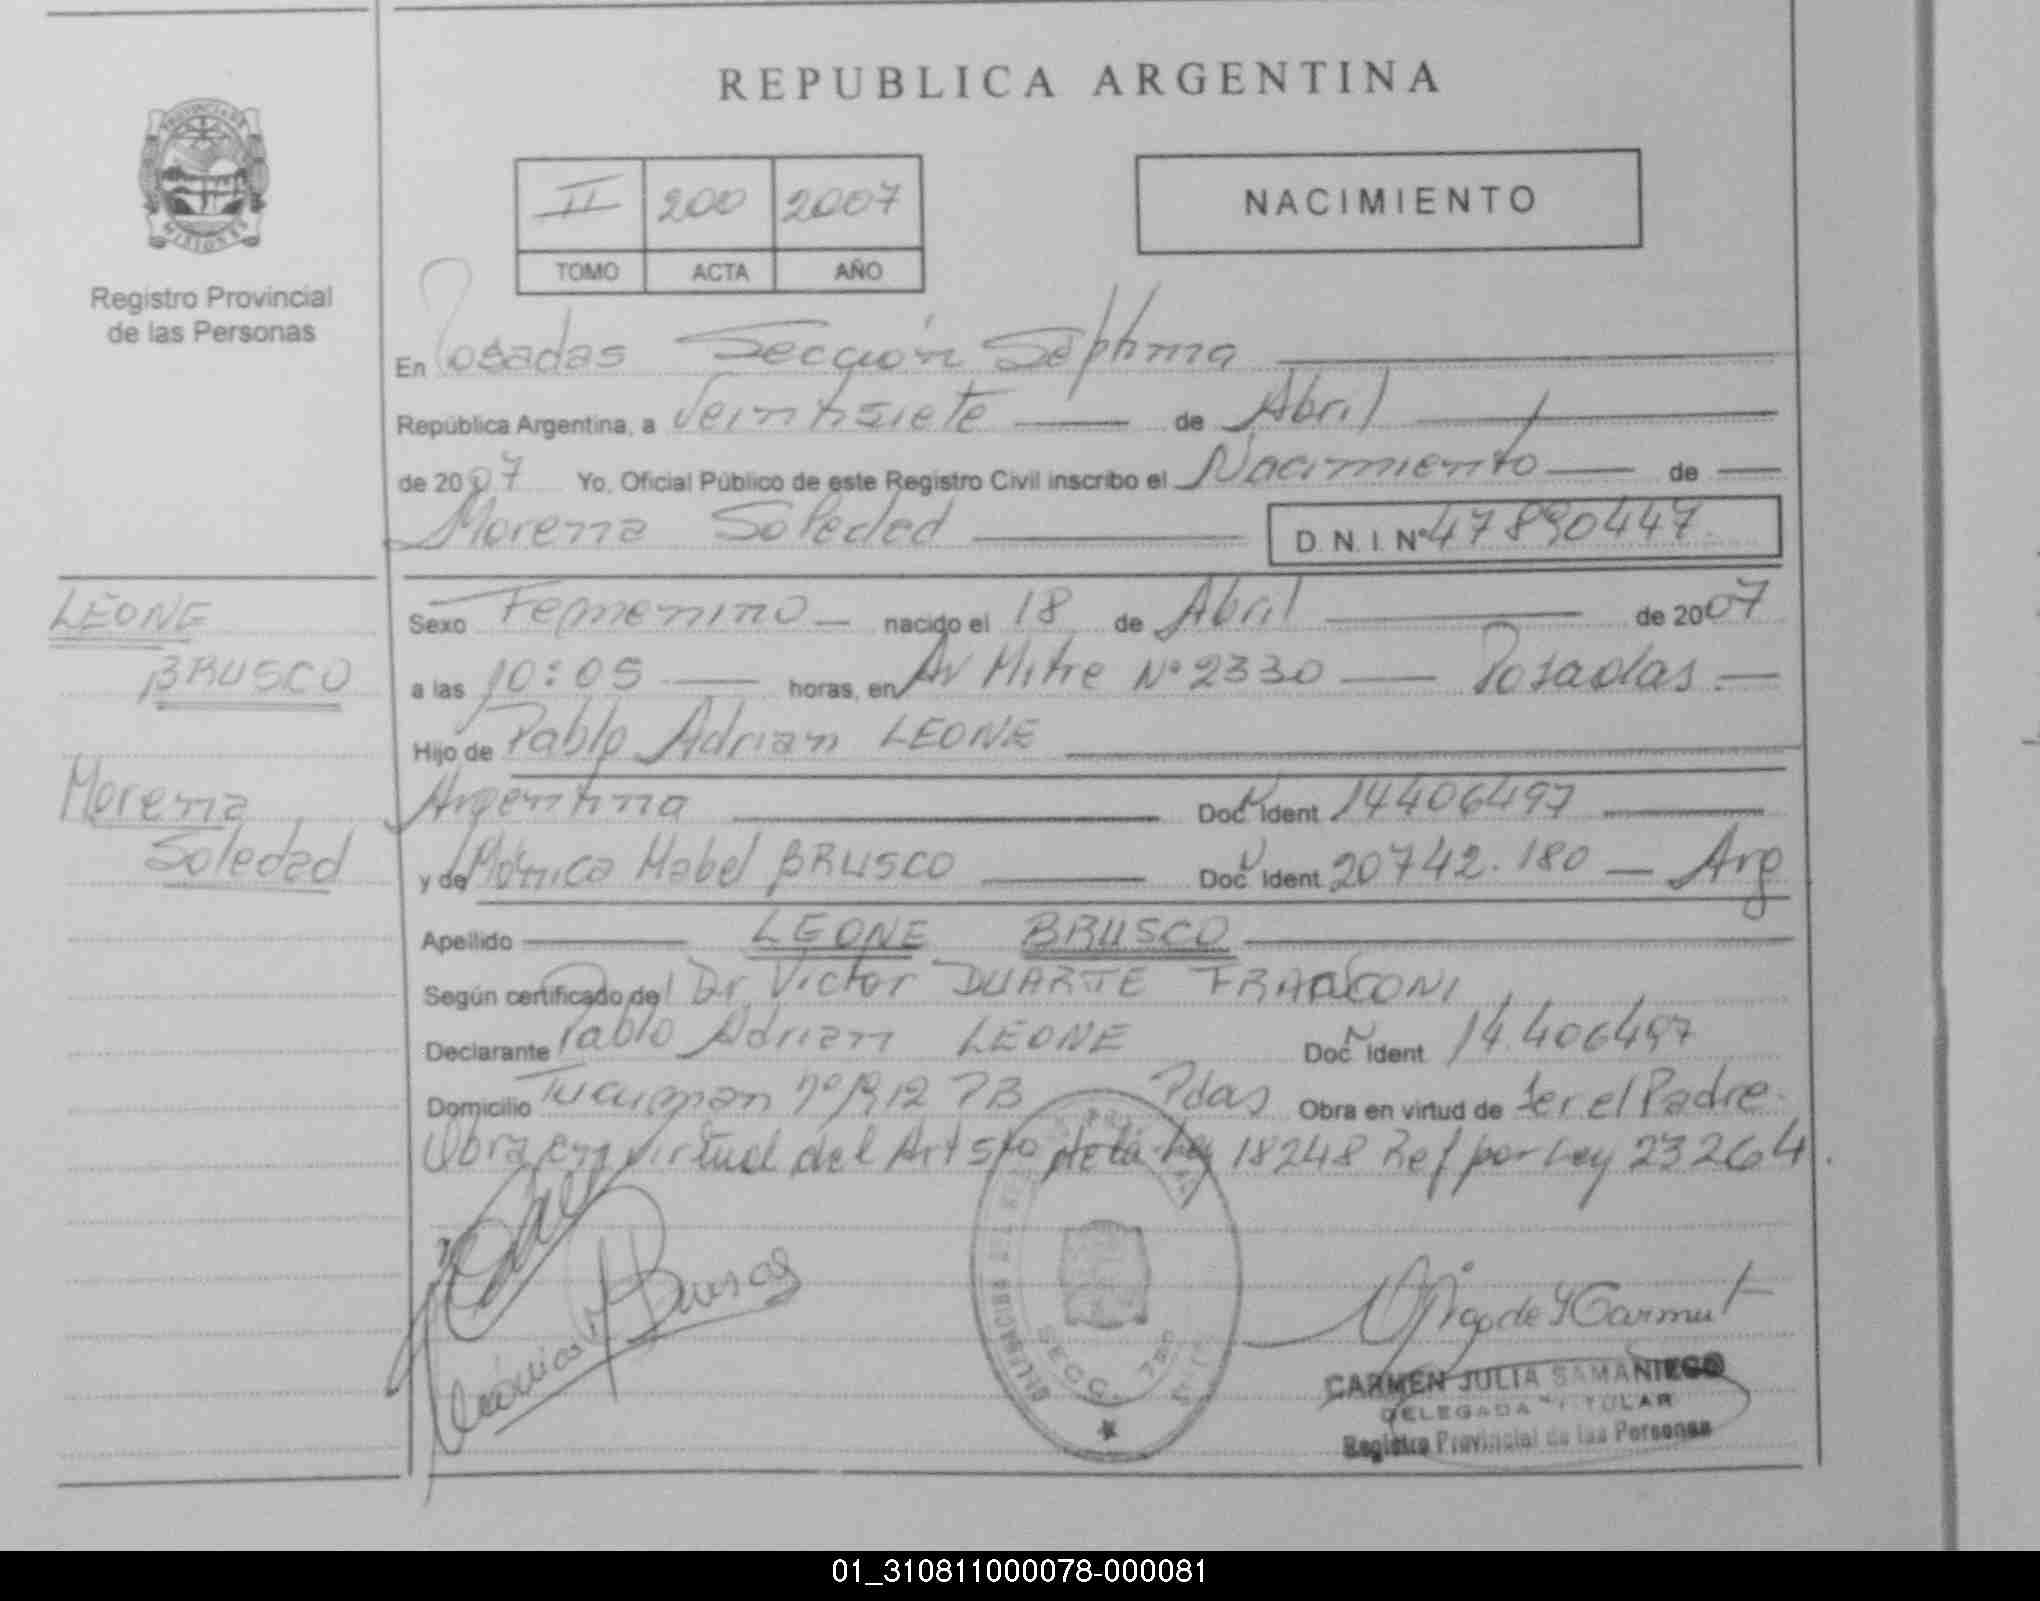 REPUBLICA ARGENTINA
PROVINCIA DE
MISIONES
Registro Provincial
de las Personas
II 200 2007
TOMO ACTA AÑO
NACIMIENTO
En Posadas Sección Séptima
República Argentina, a Veintisiete de Abril
de 2007 Yo, Oficial Público de este Registro Civil inscribo el Nacimiento de
Morena Soledad D. N. I. Nº 47890447
LEONE
BRUSCO
Morena
Soledad
Sexo Femenino nacido el 18 de Abril de 2007
a las 10:05 horas, en Av Mitre Nº 2330 Posadas
Hijo de Pablo Adrian LEONE
Argentina Doc N Ident 14406497
y de Mónica Mabel BRUSCO Doc N Ident 20742.180 Arg
Apellido LEONE BRUSCO
Según certificado del Dr Victor DUARTE
Declarante Pablo Adrian LEONE Doc N Ident 14.406497
Domicilio Tucuman nº PB Pdas Obra en virtud de ser el Padre
Obra en virtud del Art 5to de la Ley 18248 Ref por Ley 23264.
SECC. 7ma
CARMEN JULIA SAMANIEGO
DELEGADA TITULAR
Registro Provincial de las Personas
01_310811000078-000081